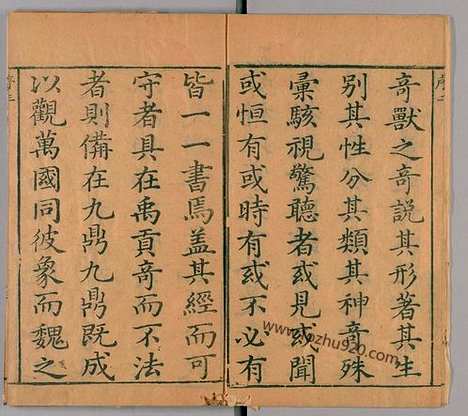 序二
奇獸之奇說其形著其生
別其性分其類其神奇殊
彙駭視驚聽者或見或聞
或恒有或時有或不必有
皆一一書焉蓋其經而可
守者具在禹貢奇而不法
者則備在九鼎九鼎既成
以觀萬國同彼象而魏之
序三
www.pzhu920.com